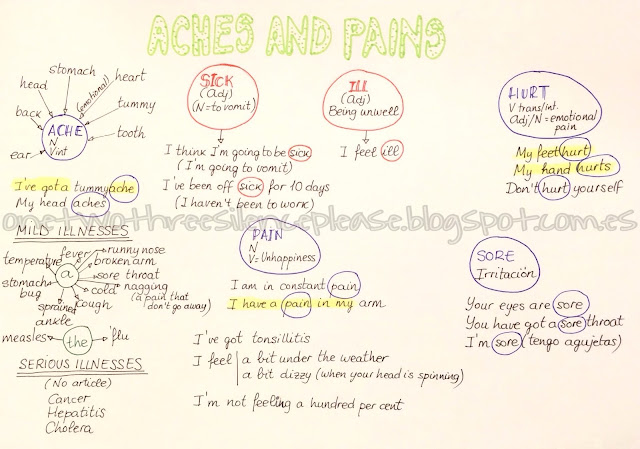 ACHES AND PAINS
stomach
head
heart
(emotional)
back
tummy
tooth
ear
ACHE
N
Vint
I've got a tummyache
My head aches
SICK
(Adj)
(N=to vomit)
I think I'm going to be sick
(I'm going to vomit)
I've been off sick for 10 days
(I haven't been to work)
ILL
(Adj)
Being unwell
I feel ill
HURT
V trans/int.
Adj/N = emotional
pain
My feet hurt
My hand hurts
Don't hurt yourself
onetwothreesilenceplease.blogspot.com.es
MILD ILLNESSES
fever
runny nose
temperature
broken arm
a
sore throat
stomach
bug
cold
nagging
(a pain that
don't go away)
sprained
ankle
cough
measles
the
'flu
SERIOUS ILLNESSES
(No article)
Cancer
Hepatitis
Cholera
PAIN
N
V=Unhappiness
I am in constant pain
I have a pain in my arm
I've got tonsillitis
I feel
a bit under the weather
a bit dizzy (when your head is spinning)
I'm not feeling a hundred per cent
SORE
Irritación
Your eyes are sore
You have got a sore throat
I'm sore (tengo agujetas)